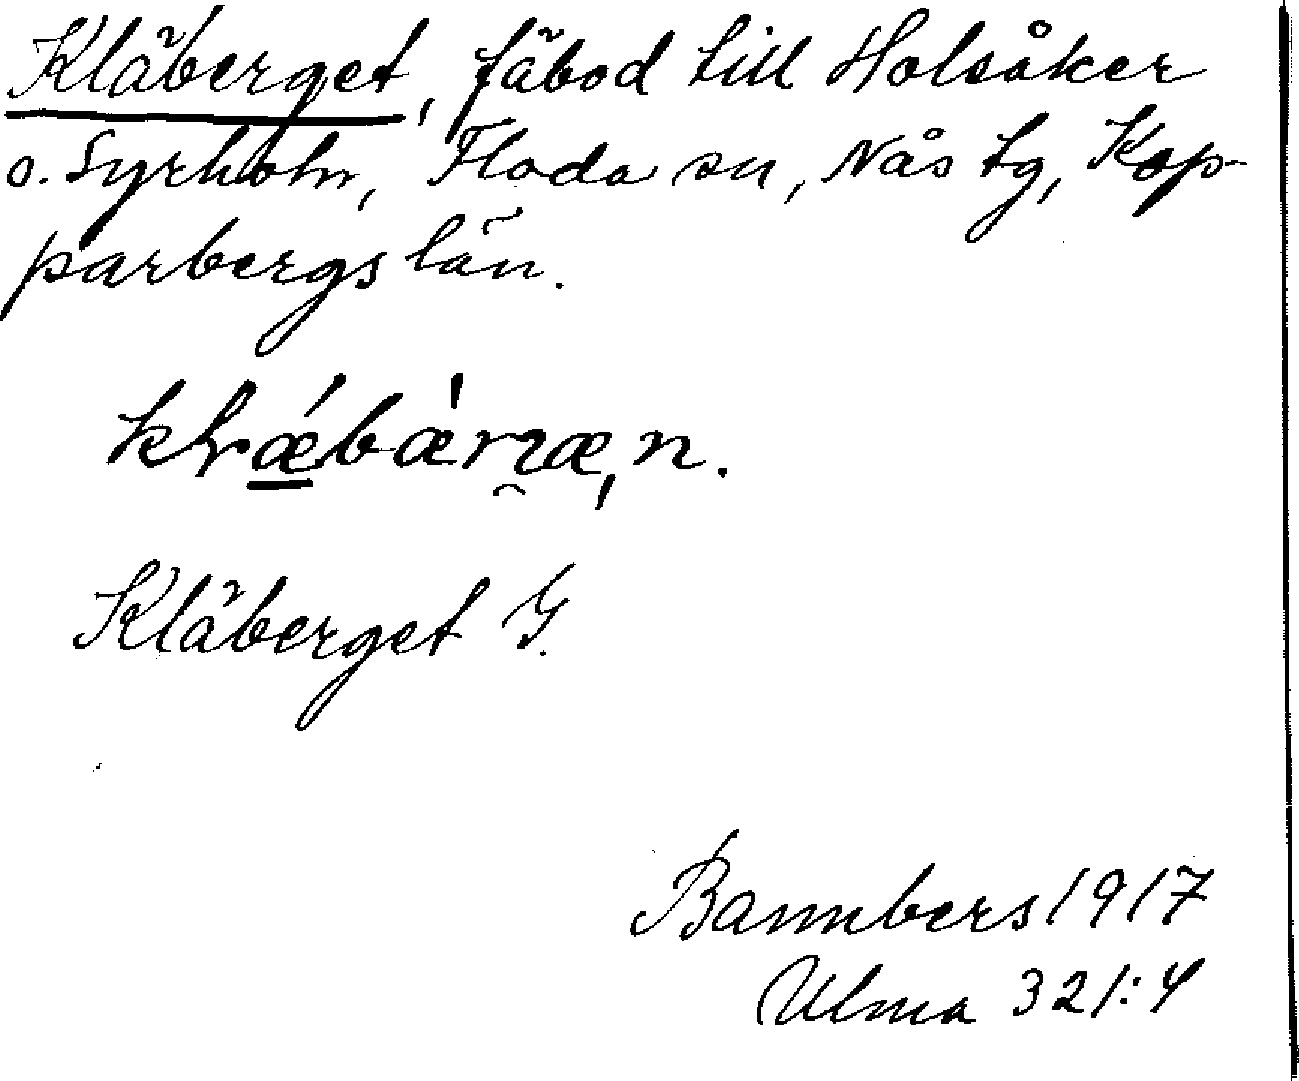 Kläberget, fäbod till Holsåker
o. Syrholn, Floda sn, Nås tg, Kop-
parbergs län.
Kläberget G.
Bannbers 1917
Ulma 321:4